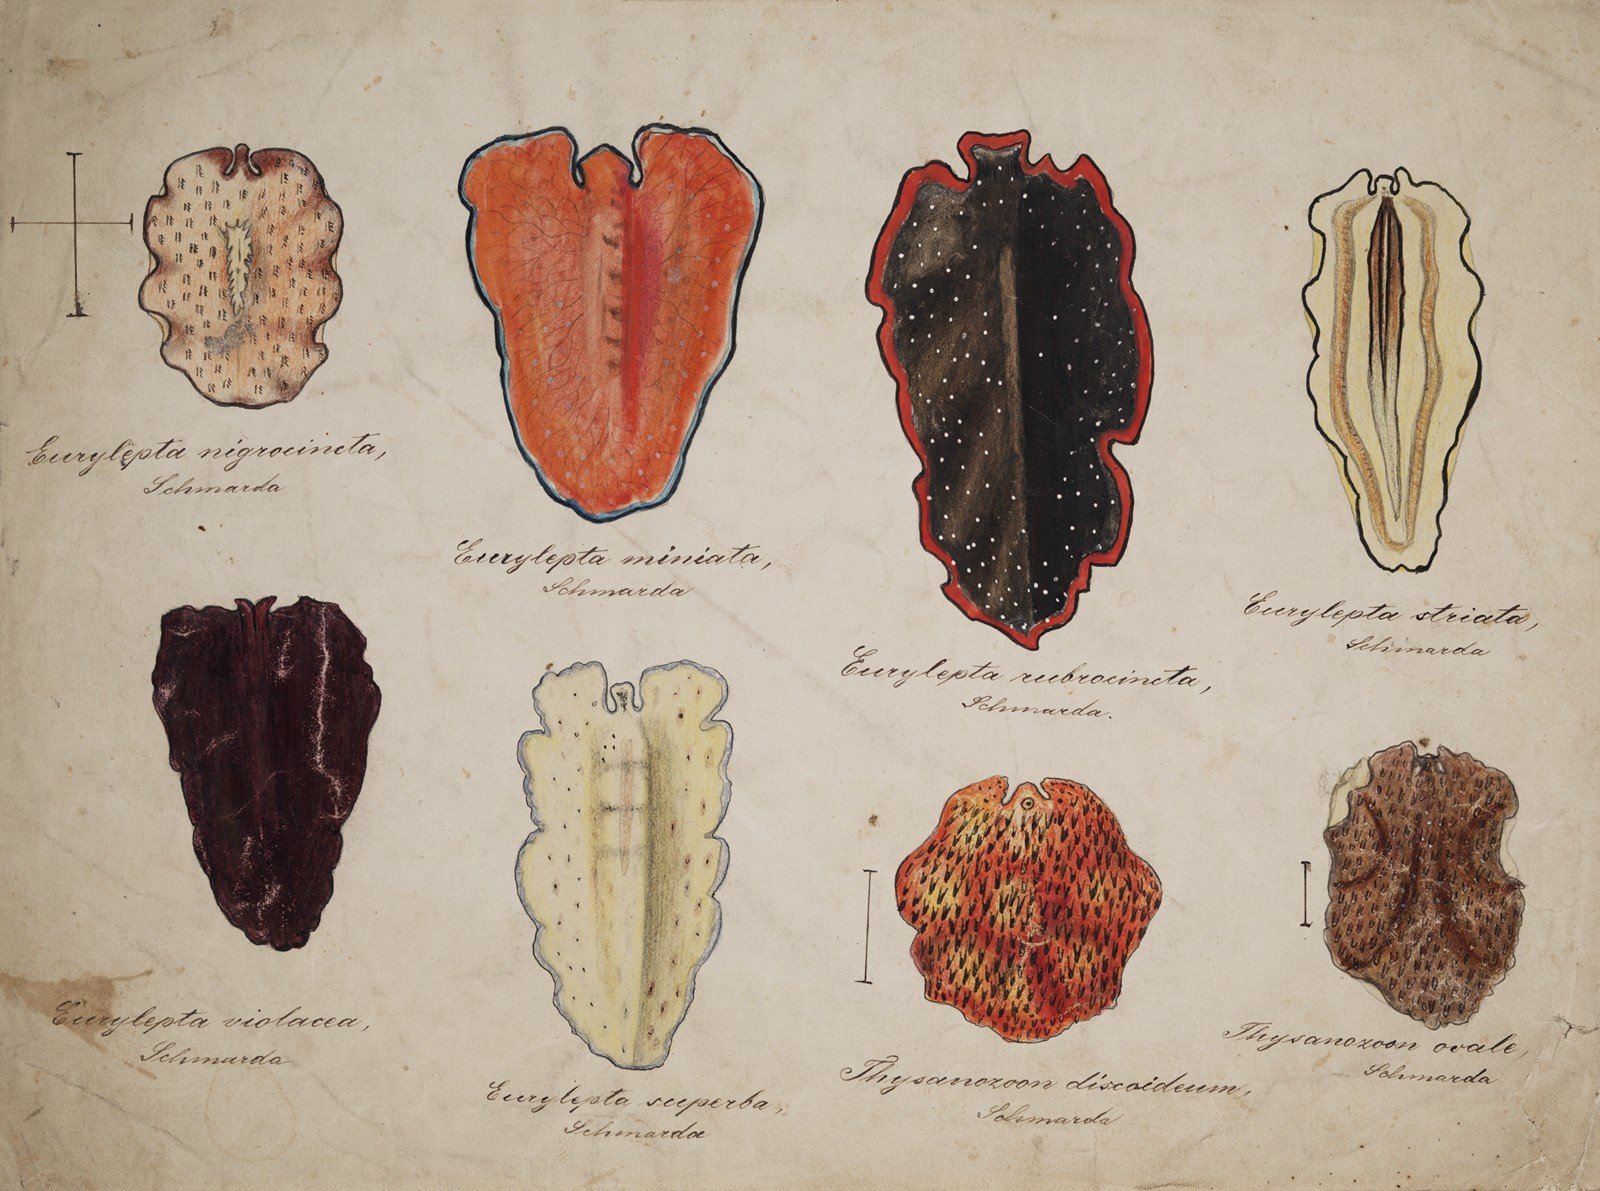 Eurylepta nigrocincta,
Schmarda
Eurylepta miniata,
Schmarda
Eurylepta rubrocincta,
Schmarda.
Eurylepta striata,
Schmarda
Eurylepta violacea,
Schmarda
Eurylepta superba,
Schmarda
Thysanozoon discoideum,
Schmarda
Thysanozoon ovale,
Schmarda